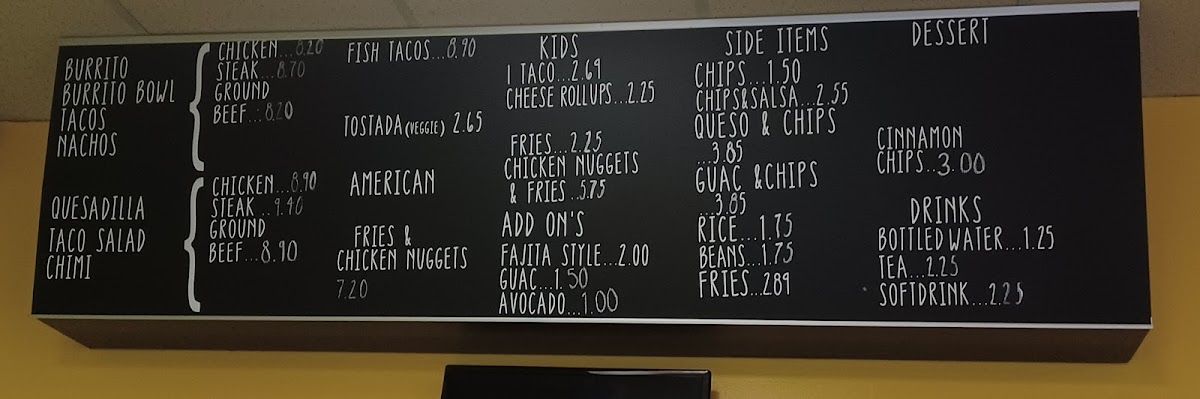 BURRITO
BURRITO BOWL
TACOS
NACHOS
CHICKEN...8.20
STEAK...8.70
GROUND
BEEF...8.20
QUESADILLA
TACO SALAD
CHIMI
CHICKEN...8.90
STEAK...9.40
GROUND
BEEF...8.90
FISH TACOS...8.90
TOSTADA (VEGGIE) 2.65
AMERICAN
FRIES &
CHICKEN NUGGETS
7.20
KIDS
1 TACO...2.69
CHEESE ROLLUPS...2.25
FRIES...2.25
CHICKEN NUGGETS
& FRIES ..5.75
ADD ON'S
FAJITA STYLE...2.00
GUAC...1.50
AVOCADO...1.00
SIDE ITEMS
CHIPS...1.50
CHIPS&SALSA...2.55
QUESO & CHIPS
...3.85
GUAC &CHIPS
...3.85
RICE...1.75
BEANS...1.75
FRIES...2.89
DESSERT
CINNAMON
CHIPS..3.00
DRINKS
BOTTLED WATER...1.25
TEA...2.25
SOFTDRINK...2.25